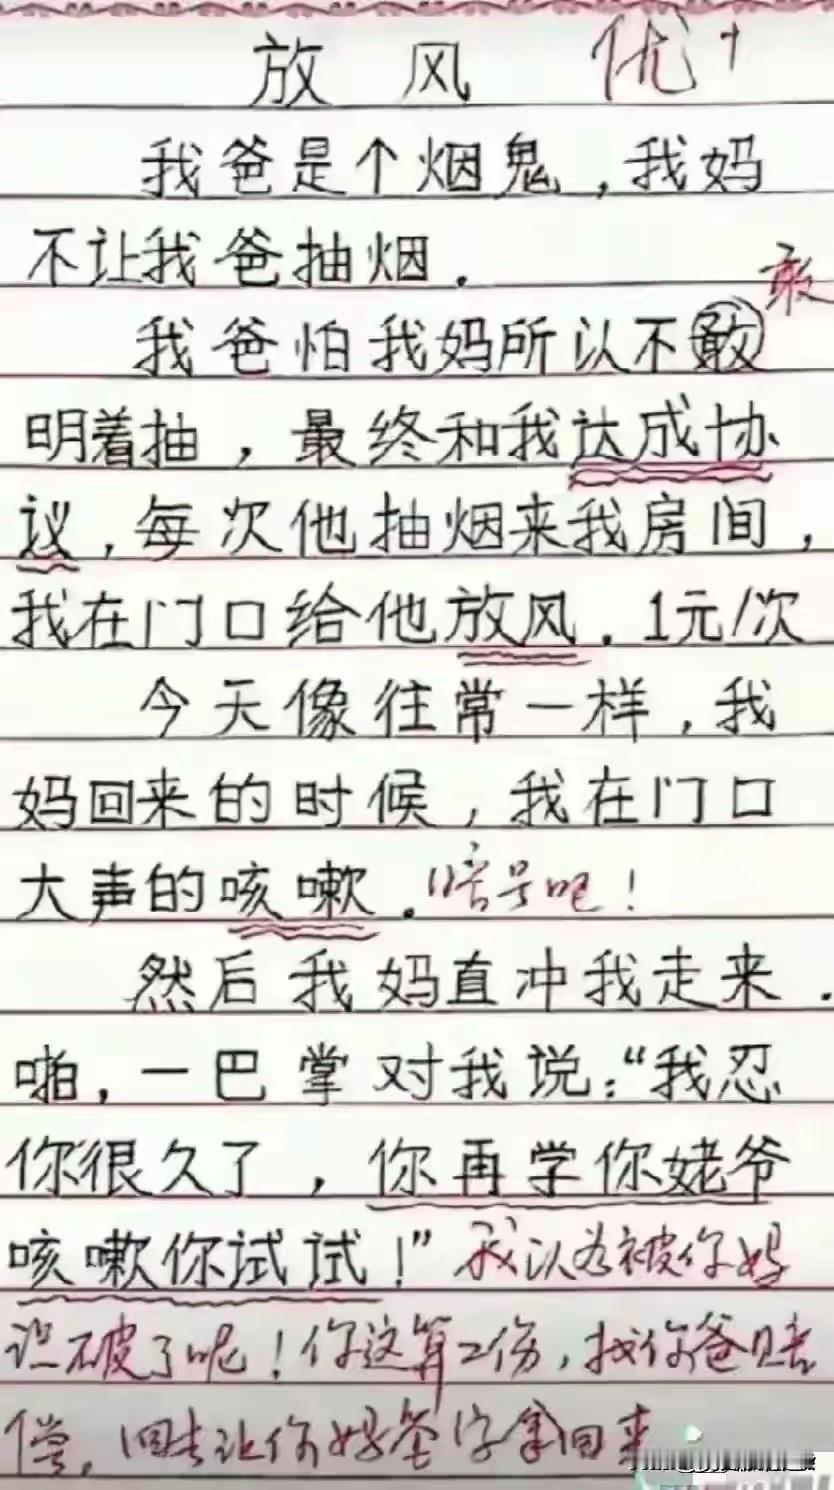 放风 优+
我爸是个烟鬼，我妈
不让我爸抽烟．
敢
我爸怕我妈所以不敢
明着抽，最终和我达成协
议，每次他抽烟来我房间，
我在门口给他放风．1元/次
今天像往常一样，我
妈回来的时候，我在门口
大声的咳嗽．暗号吧！
然后我妈直冲我走来．
啪，一巴掌对我说："我忍
你很久了，你再学你姥爷
咳嗽你试试！"我以为被你妈
识破了呢！你这算工伤，找你爸赔
偿，回去让你妈签字拿回来